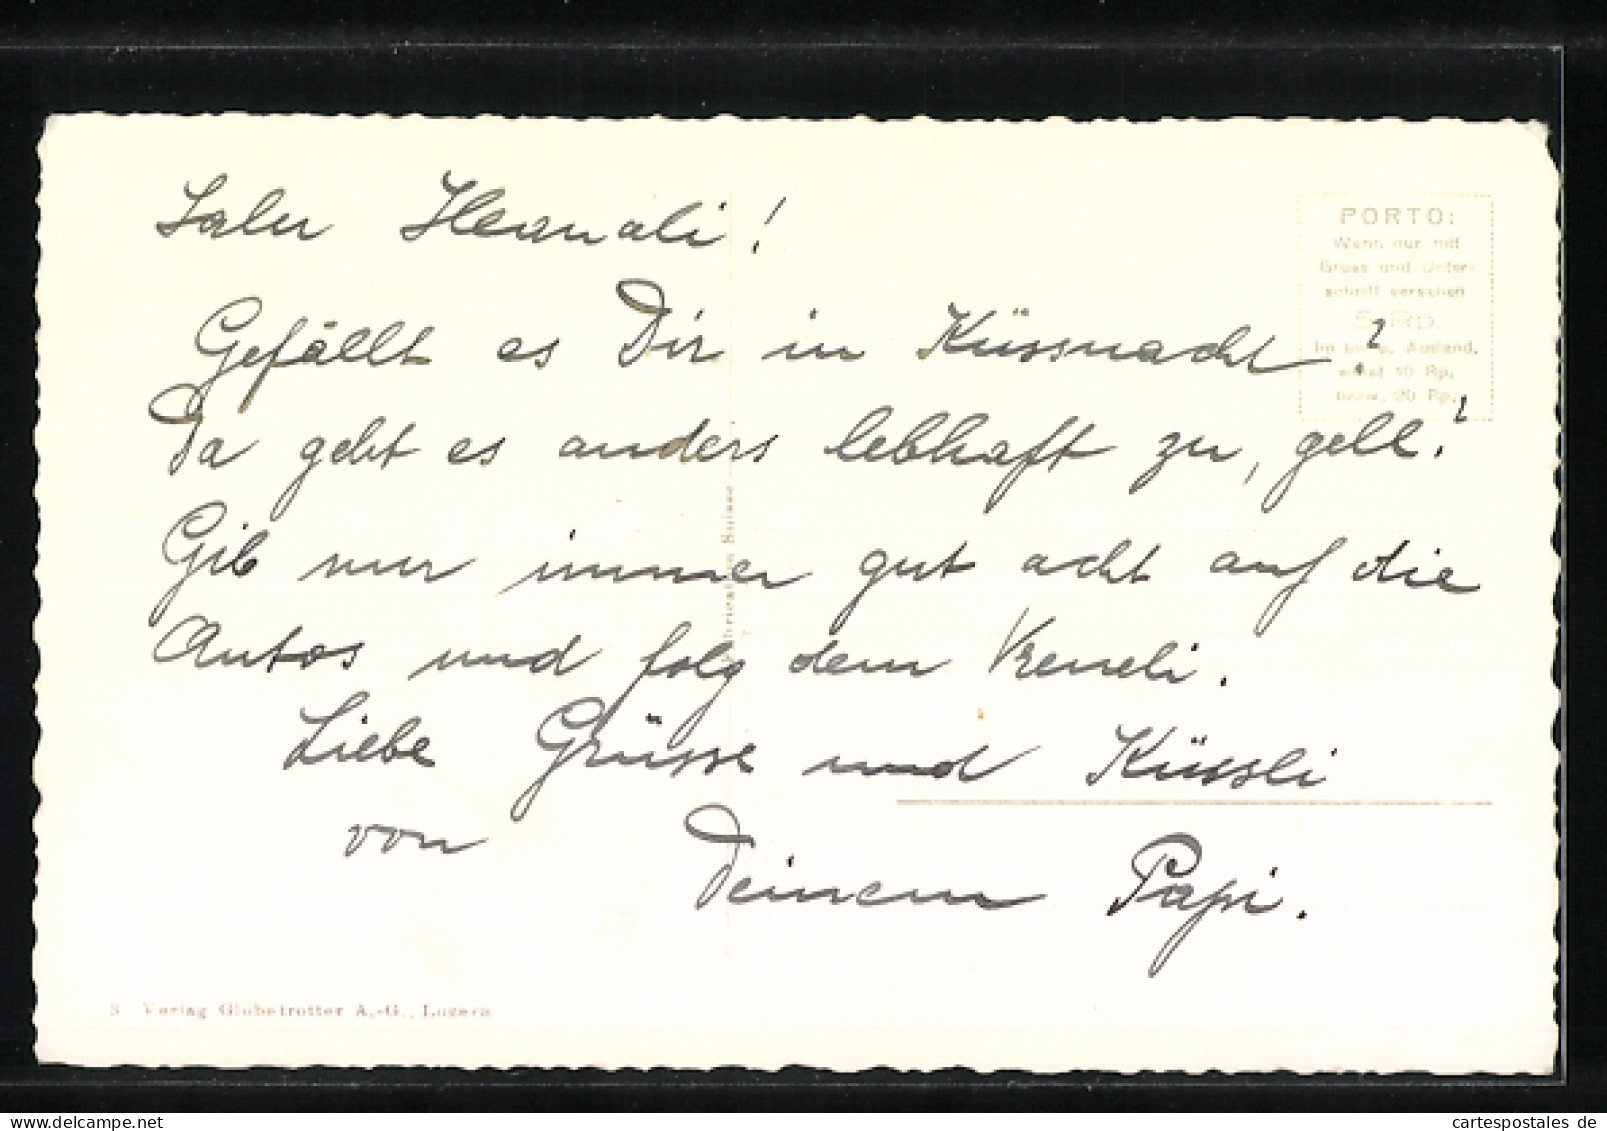 Salu Hermali!
PORTO:
Wenn nur mit
Gruss und Unter-
schrift versehen
5 Rp.
Ausland,
10 Rp.
bezw. 20 Rp.
Gefällt es Dir in Küssnacht?
Da geht es anders lebhaft zu, gell?
Gib nur immer gut acht auf die
Autos und folg dem Vreneli.
Liebe Grüsse und Küssli
von Deinem Papi.
Suisse
Verlag Globetrotter A.-G., Luzern
cartespostales de